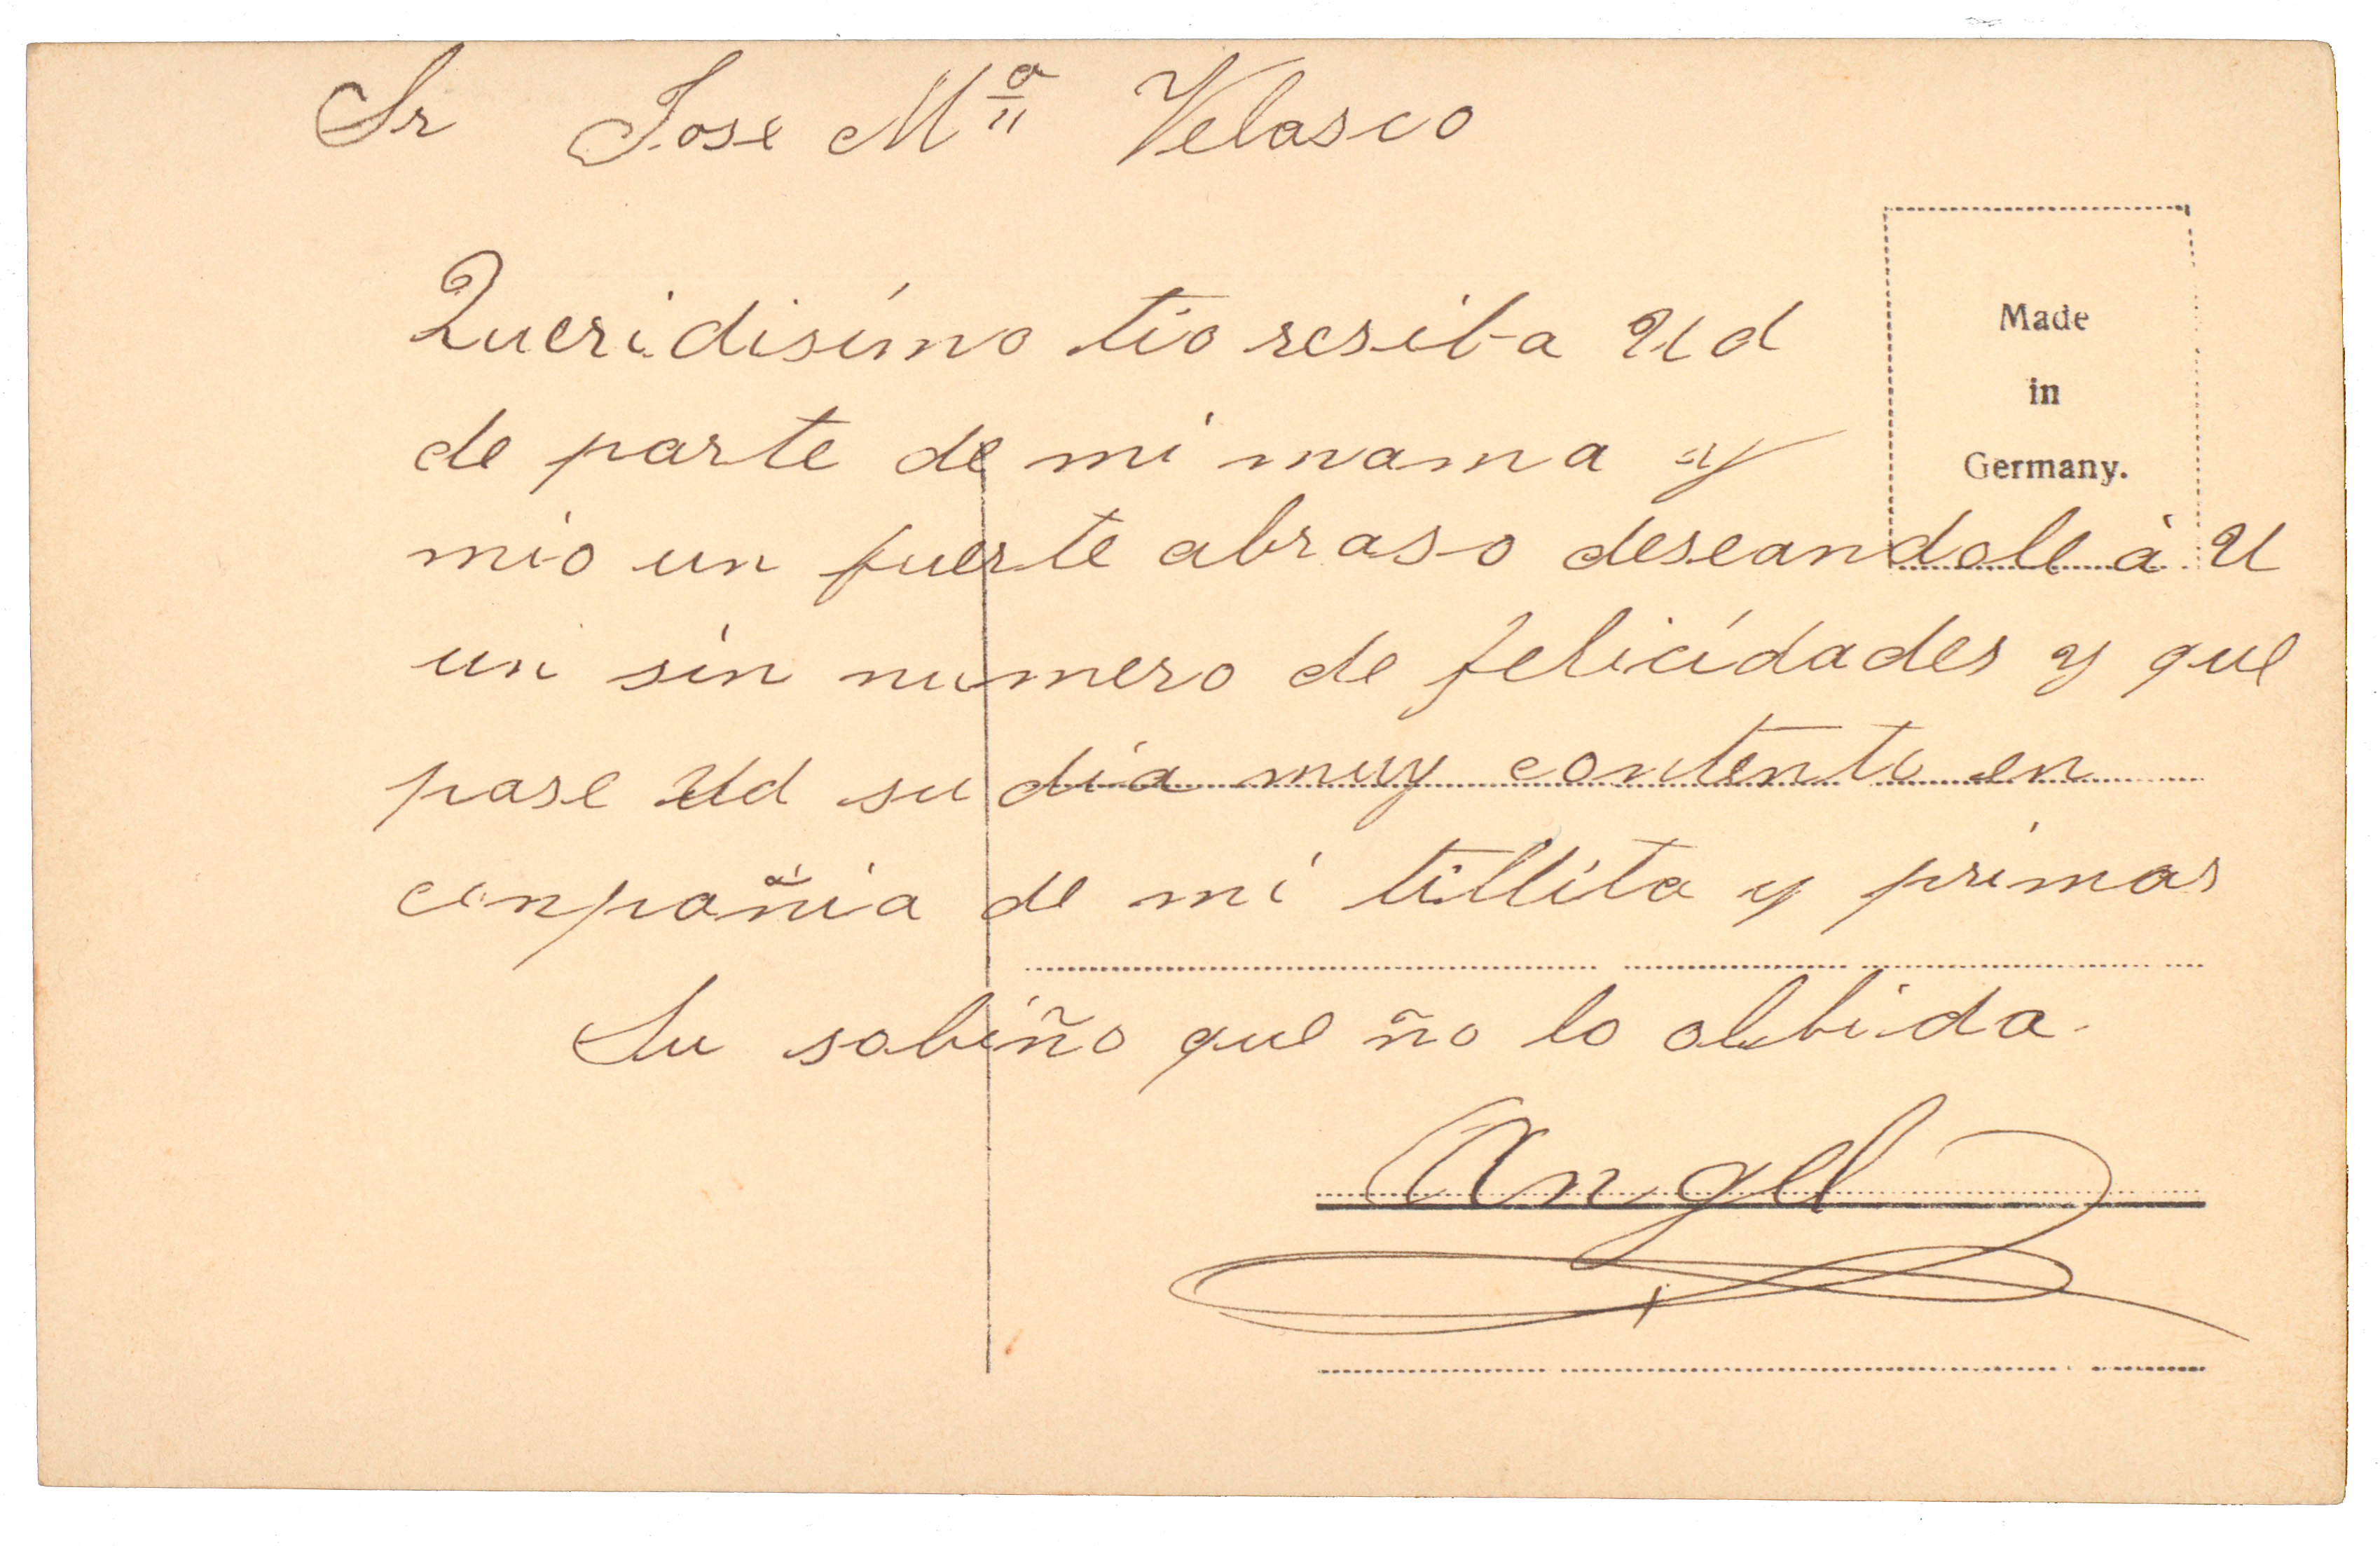 Sr Jose Mª Velasco
Queridisimo tio resiba Ud
Made
in
Germany.
de parte de mi mama y
mio un fuerte abraso deseandole à U
un sin numero de felicidades y que
pase Ud su dia muy contento en
conpañia de mi tillita y primas
Su sobiño que ño lo olbida.
Angel